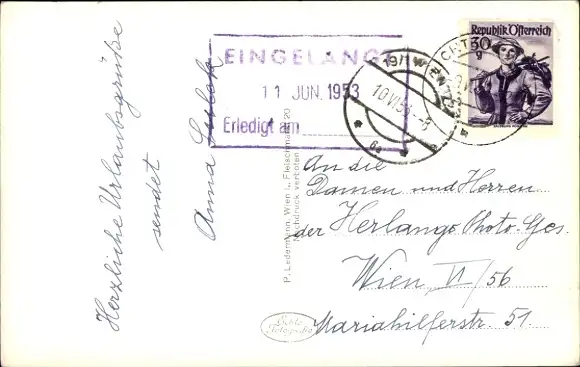 Herzliche Urlaubsgrüße
sendet
Anna
EINGELANGT
11 JUN. 1953
Erledigt am
10.VI.53-8
Republik Österreich
30
g
P. Ledermann, Wien I., Fleischmarkt 20
Nachdruck verboten
An die
Damen und Herren
der Herlango Photo Ges.
Wien, VI/56
Mariahilferstr. 51.
Echte
Fotografie